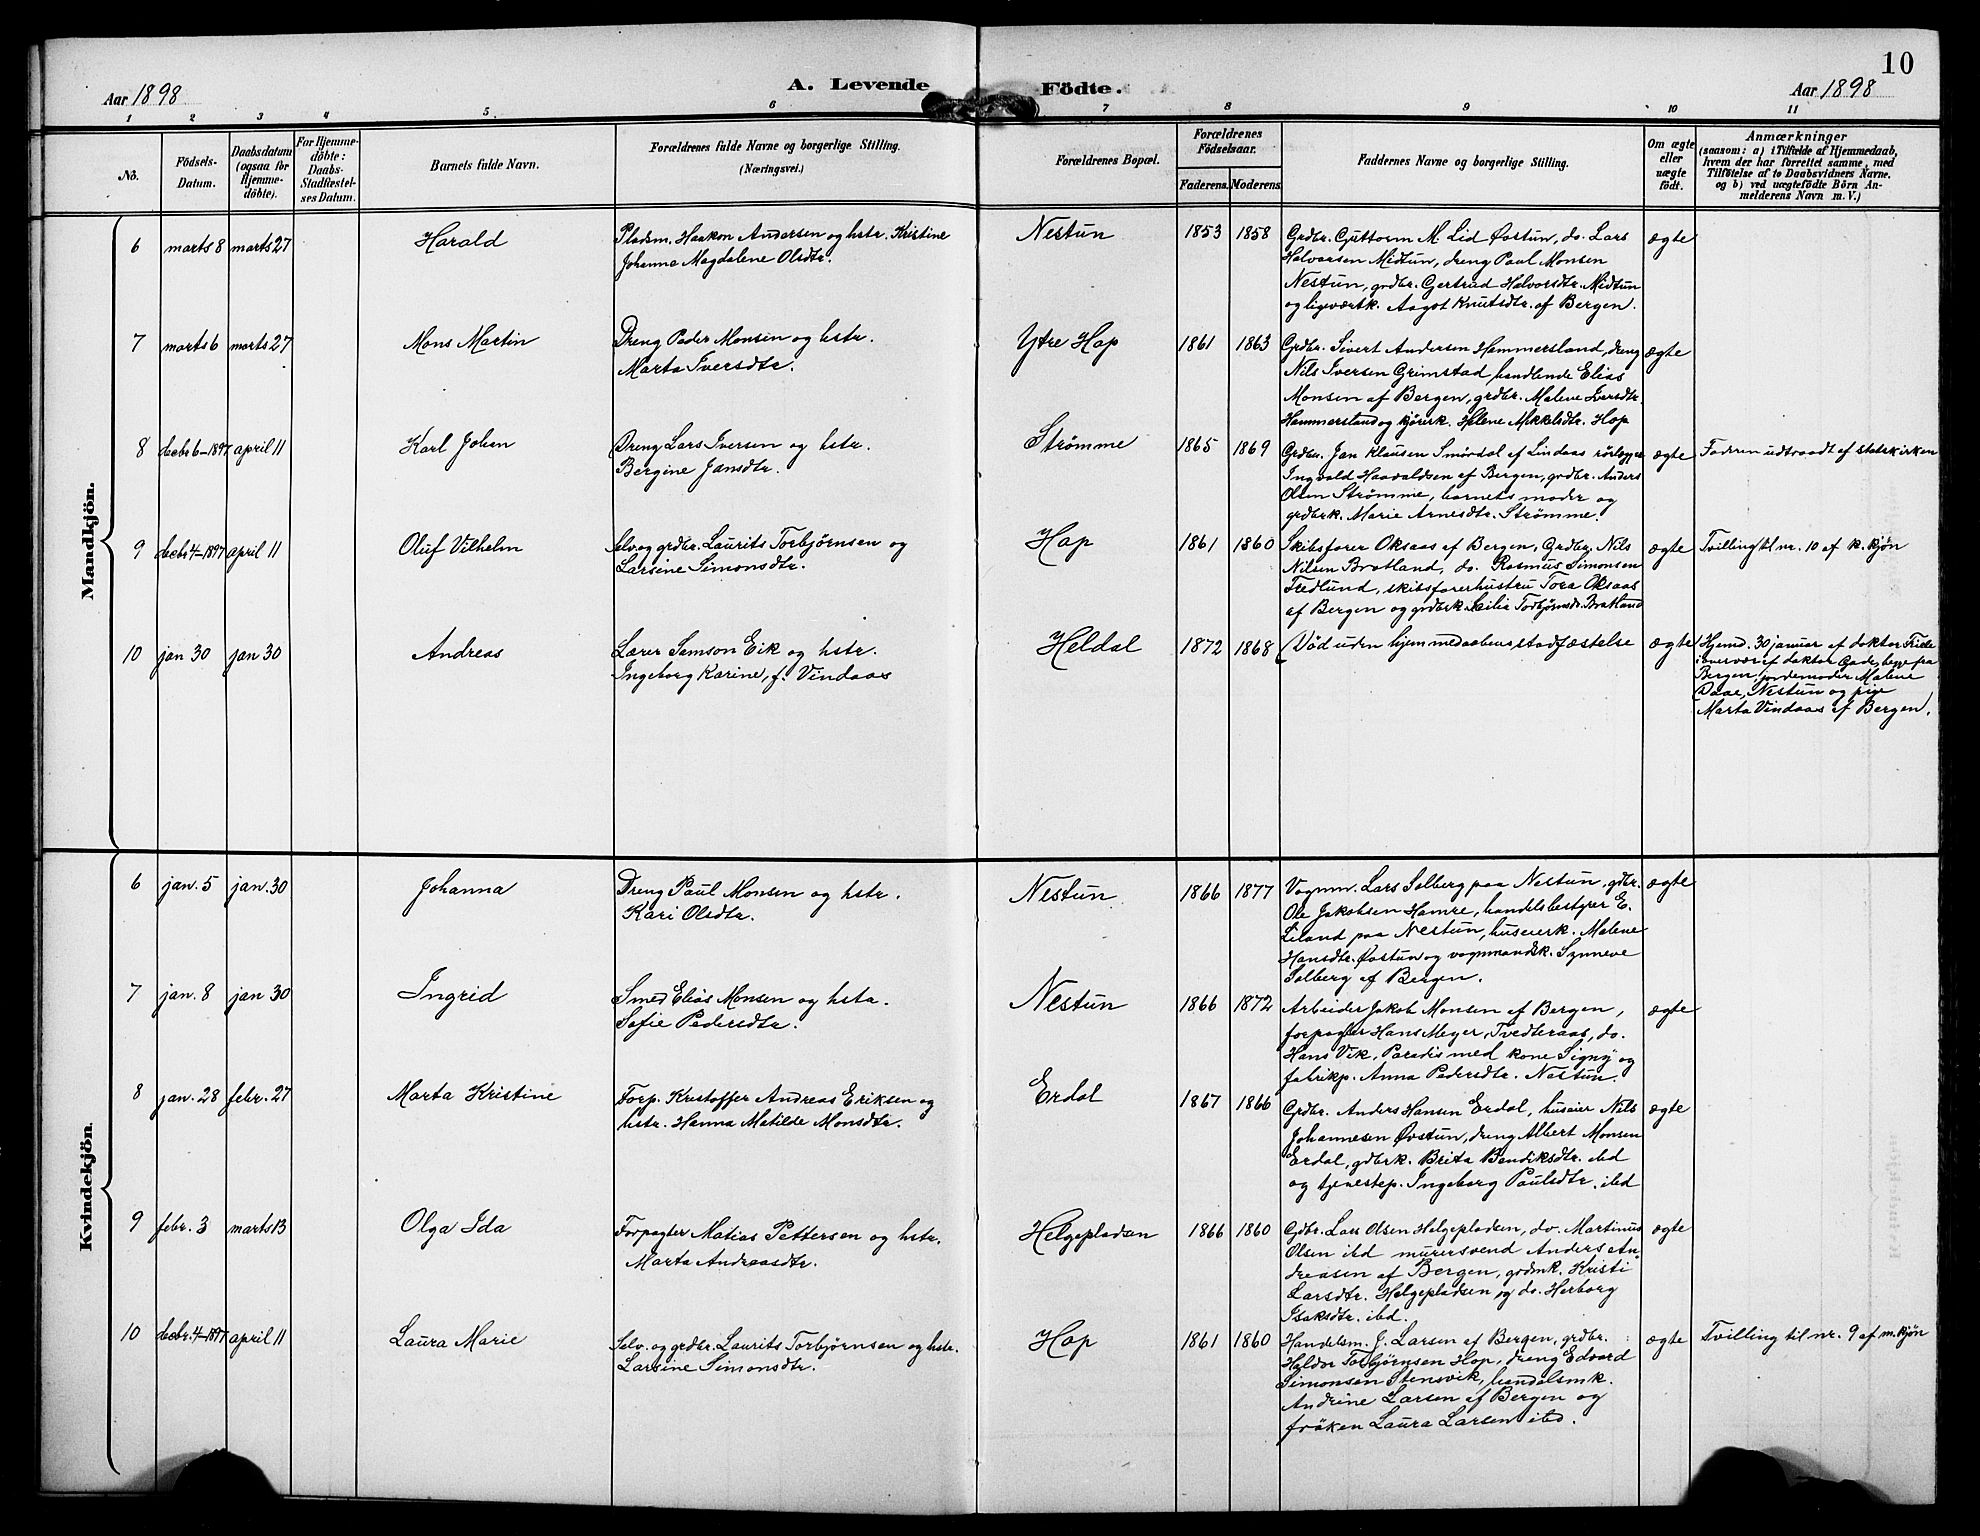 10
Aar 1898
A. Levende Födte.
Aar 1898
1 2 3 4 5 6 7 8 9 10 11
No.
Födsels-
Datum.
Daabsdatum
(ogsaa for
Hjemme-
döbte).
For Hjemme-
döbte:
Daabs-
Stadfæstel-
ses Datum.
Barnets fulde Navn.
Forældrenes fulde Navne og borgerlige Stilling.
(Næringsvei.)
Forældrenes Bopæl.
Forældrenes
Födselsaar.
Faderens. Moderens.
Faddernes Navne og borgerlige Stilling.
Om ægte
eller
uægte
födt.
Anmærkninger
(saasom: a) i Tilfælde af Hjemmedaab,
hvem der har forrettet samme, med
Tilföielse af to Daabsvidners Navne.
og b) ved uægtefödte Börn An-
melderens Navn m. V.)
Mandkjön.
6 marts 8 marts 27 Harald
Pladsm. Haakon Andersen og hstr. Kristine
Johanna Magdalene Olsdtr.
Nestun 1853 1858
Grdbr. Guttorm M. Lid Øvstun, do. Lars
Halvorsen Midtun, dreng Paul Monsen
Nestun, grdbr. Gertrud Halvorsdtr. Midtun
og ligeværtk. Aagot Knutsdtr. af Bergen.
ægte
7 marts 6 marts 27 Mons Martin
Dreng Peder Monsen og hstr.
Marta Iversdtr.
Ytre Hop 1861 1863
Grdbr. Sivert Andersen Hammersland, dreng
Nils Iversen Grimstad, handlende Elias
Monsen af Bergen, grdbr. Malene Iversdtr.
Hammersland og kjörerk. Helene Mikkelsdtr. Hop
ægte
8 decbr 6-1897 april 11 Karl Johan
Dreng Lars Iversen og hstr.
Bergine Jansdtr.
Strømme 1865 1869
Grdbr. Jan Klausen Smørdal af Lindaas rörlægger
Ingvald Haavaldsen af Bergen, grdbr. Anders
Olsen Strømme, barnets moder og
grdbrk. Marie Arnesdtr. Strømme.
ægte
Faderen udtraadt af statskirken
9 decbr 4-1897 april 11 Oluf Vilhelm
Selv. og grdbr. Laurits Torbjørnsen og
Larsine Simonsdtr.
Hop 1861 1860
Skibsfører Oksaas af Bergen, Grdbr. Nils
Nilsen Bratland, do. Rasmus Simonsen
Fredlund, skibsførerhustru Tora Oksaas
af Bergen og grdbrk. Torbjørnsdr. Bratland
ægte
Tvilling til nr. 10 af k. kjön
10 jan 30 jan 30 Andreas
Lærer Samson Eik og hstr.
Ingeborg Karine, f. Vindaas
Heldal 1872 1868
(Död uden hjemmedaabens stadfæstelse
ægte
Hjemd. 30 januar af doktor
i overvær af doktor Gade, begge fra
Bergen, jordemoder Malene
Daae, Nestun og pige
Marta Vindaas af Bergen.
Kvindekjön.
6 jan. 5 jan. 30 Johanna
Dreng Paul Monsen og hstr.
Kari Olsdtr.
Nestun 1866 1877
Vognm. Lars Solberg paa Nestun, gdbr.
Ole Jakobsen Hamre, handelsbestyrer E.
Liland paa Nestun, huseierk. Malene
Hansdtr. Øvstun og vognmandsk. Synneve
Solberg af Bergen.
ægte
7 jan. 8 jan 30 Ingrid
Smed Elias Monsen og hstr.
Sofie Pedersdtr.
Nestun 1866 1872
Arbeider Jakob Monsen af Bergen,
forpagter Hans Meyer, Tvedteraas, do.
Hans Vik, Paradis med kone Signy og
fabrikp. Anna Pedersdtr. Nestun.
ægte
8 jan. 28 febr. 27 Marta Kristine
Forp. Kristoffer Andreas Eriksen og
hstr. Hanna Matilde Monsdtr.
Erdal 1867 1866
Grdbr. Anders Hansen Erdal, huseier Nils
Johannesen Øvstun, dreng Albert Monsen
Erdal, gdbrk. Brita Bendiksdtr. ibd
og tjenestep. Ingeborg Paulsdtr. ibd
ægte
9 febr. 3 marts 13 Olga Ida
Forpagter Matias Pettersen og hstr.
Marta Andreasdtr.
Helgepladsen 1866 1860
Gdbr. Lars Olsen Helgepladsen, do. Martinus
Olsen ibd murersvend Anders An-
dreasen af Bergen, grdmk. Kristi
Larsdtr. Helgepladsen og do. Herborg
Isaksdtr. ibd.
ægte
10 decbr. 4-1897 april 11 Laura Marie
Selv. og grdbr. Laurits Torbjørnsen og hstr.
Larsine Simonsdtr.
Hop 1861 1860
Handelsm. J. Larsen af Bergen, grdbr.
Haldor Torbjørnsen Hop, dreng Edvard
Simonsen Stensvik, handelsmk.
Andrine Larsen af Bergen og
frøken Laura Larsen ibd.
ægte
Tvilling til nr. 9 af m. kjön